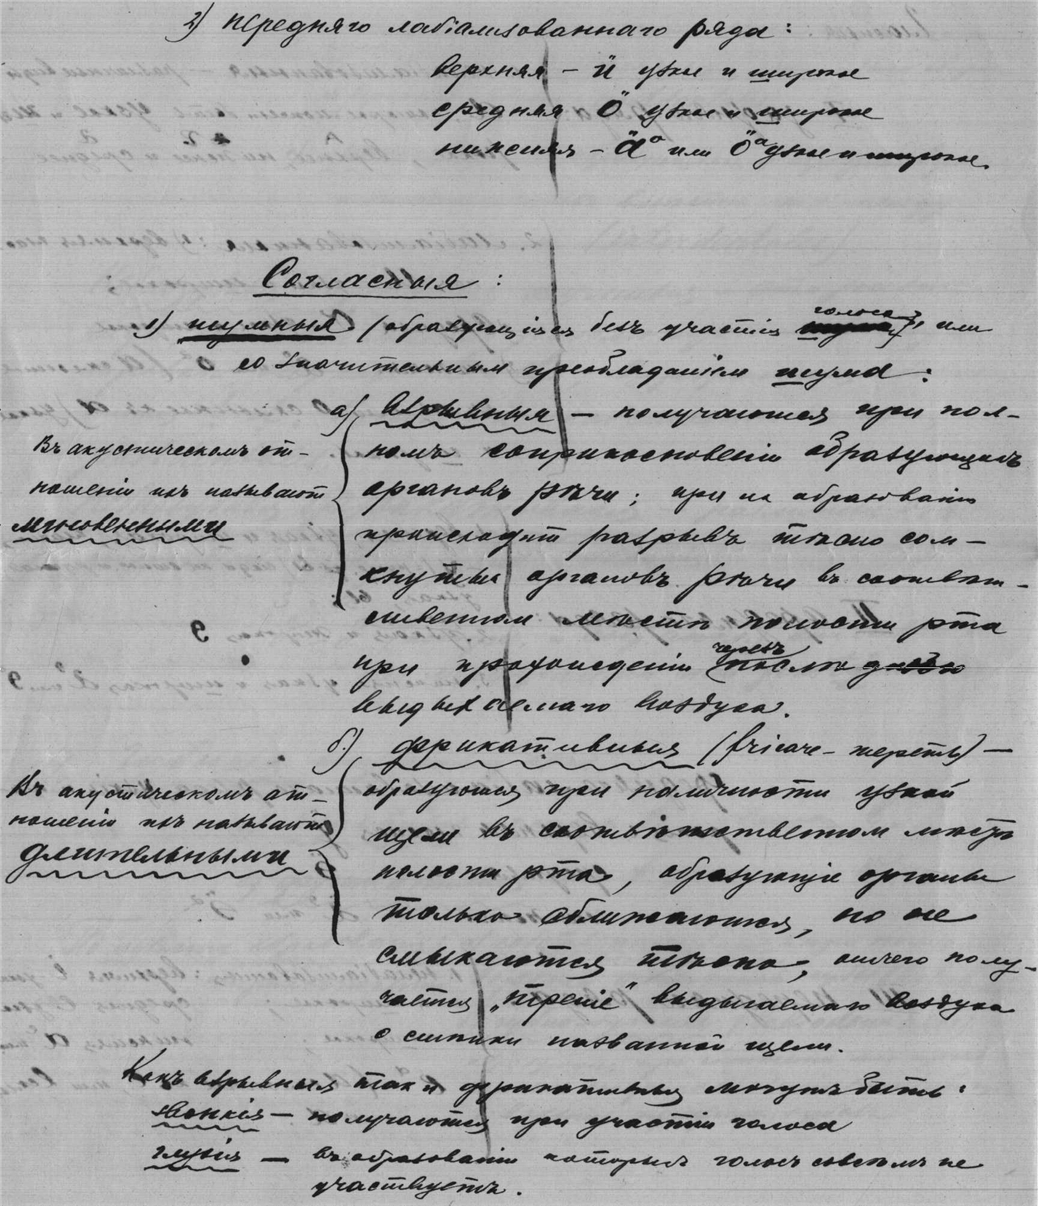 2) передняго лабіализованнаго ряда:
верхняя – ü узкое и широкое
средняя – ö узкое и широкое
нижняя – äº или öª узкое и широкое
Согласныя:
1) шумныя (образующіяся безъ участія голоса), или
со значительнымъ преобладаніемъ шума:
а) взрывныя – получаются при пол-
номъ соприкосновеніи образующихъ
органовъ рѣчи; при ихъ образованіи
происходитъ разрывъ тѣсно сом-
кнутыхъ органовъ рѣчи въ соотвѣт-
ственномъ мѣстѣ полости рта
при прохожденіи черезъ
выдыхаемаго воздуха.
Въ акустическомъ от-
ношеніи ихъ называютъ
мгновенными
б) фрикативныя (fricare – тереть) –
образуются при наличности узкой
щели въ соотвѣтственномъ мѣстѣ
полости рта, образующіе органы
только сближаются, но не
смыкаются тѣсно, отчего полу-
чается „треніе" выдыхаемаго воздуха
о стѣнки названной щели.
Въ акустическомъ от-
ношеніи ихъ называютъ
длительными
Какъ взрывныя такъ и фрикативныя могутъ быть:
звонкія – получаются при участіи голоса
глухія – въ образованіи которыхъ голосъ совсѣмъ не
участвуетъ.